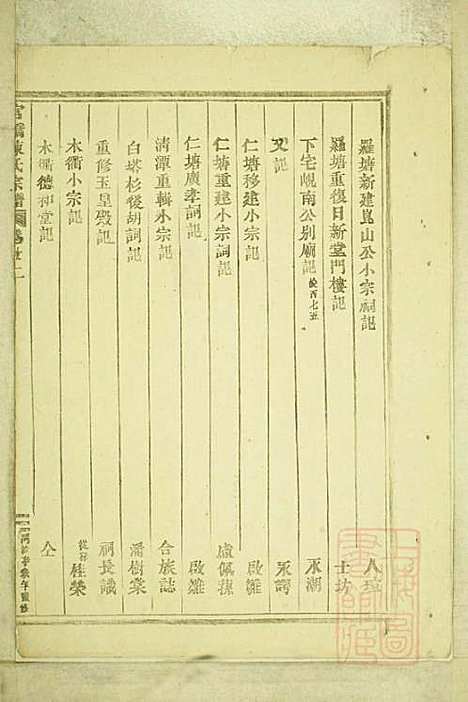 羅塘新建崑山公小宗祠記 人
羅塘重復日新堂門樓記 士坊
下宅峴南公別廟記 說百七五 永潮
又記 永諤
仁塘移建小宗記 啟雛
仁塘重建小宗祠記 盧佩蓀
仁塘廣孝祠記 啟雛
清潭重輯小宗記 合族誌
白塔杉後胡祠記 潘樹棠
重修玉皇殿記 祠長識
木衢小宗記 從孫 桂榮
木衢德和堂記 仝
陳氏宗譜